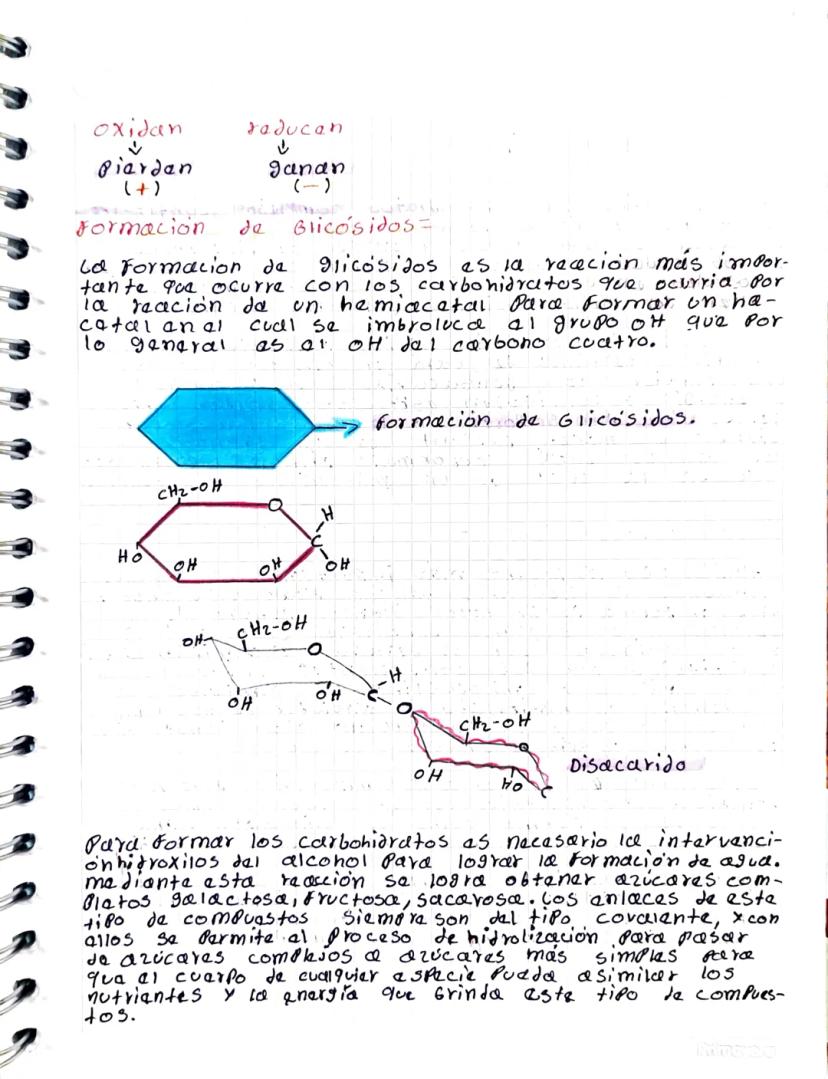 oxidan reducen
pierden ganan
(+) (-)
Formacion de Glicósidos=
La Formacion de glicósidos es la reacción más impor-
tante que ocurre con los carbohidratos que ocurria por
la reacción de un hemiacetal para formar un ha-
cetal en el cual se imbroluca al grupo OH que por
lo general es el OH del carbono cuatro.
Formación de Glicósidos.
CH2-OH
O
H
C
HO OH OH OH
OH CH2-OH
O
H
OH OH C O
CH2-OH
O
Disacarido
OH HO C
Para formar los carbohidratos es necesario la intervenci-
ón hidroxilos del alcohol para lograr la formación de agua.
mediante esta reacción se logra obtener azúcares com-
pletos galactosa, fructosa, sacarosa. Los enlaces de este
tipo de compuestos siempre son del tipo covalente, x con
ellos se permite el proceso de hidrolización para pasar
de azúcares complejos a azúcares más simples para
que el cuerpo de cualquier especie pueda asimilar los
nutrientes y la energía que brinda este tipo de compues-
tos.